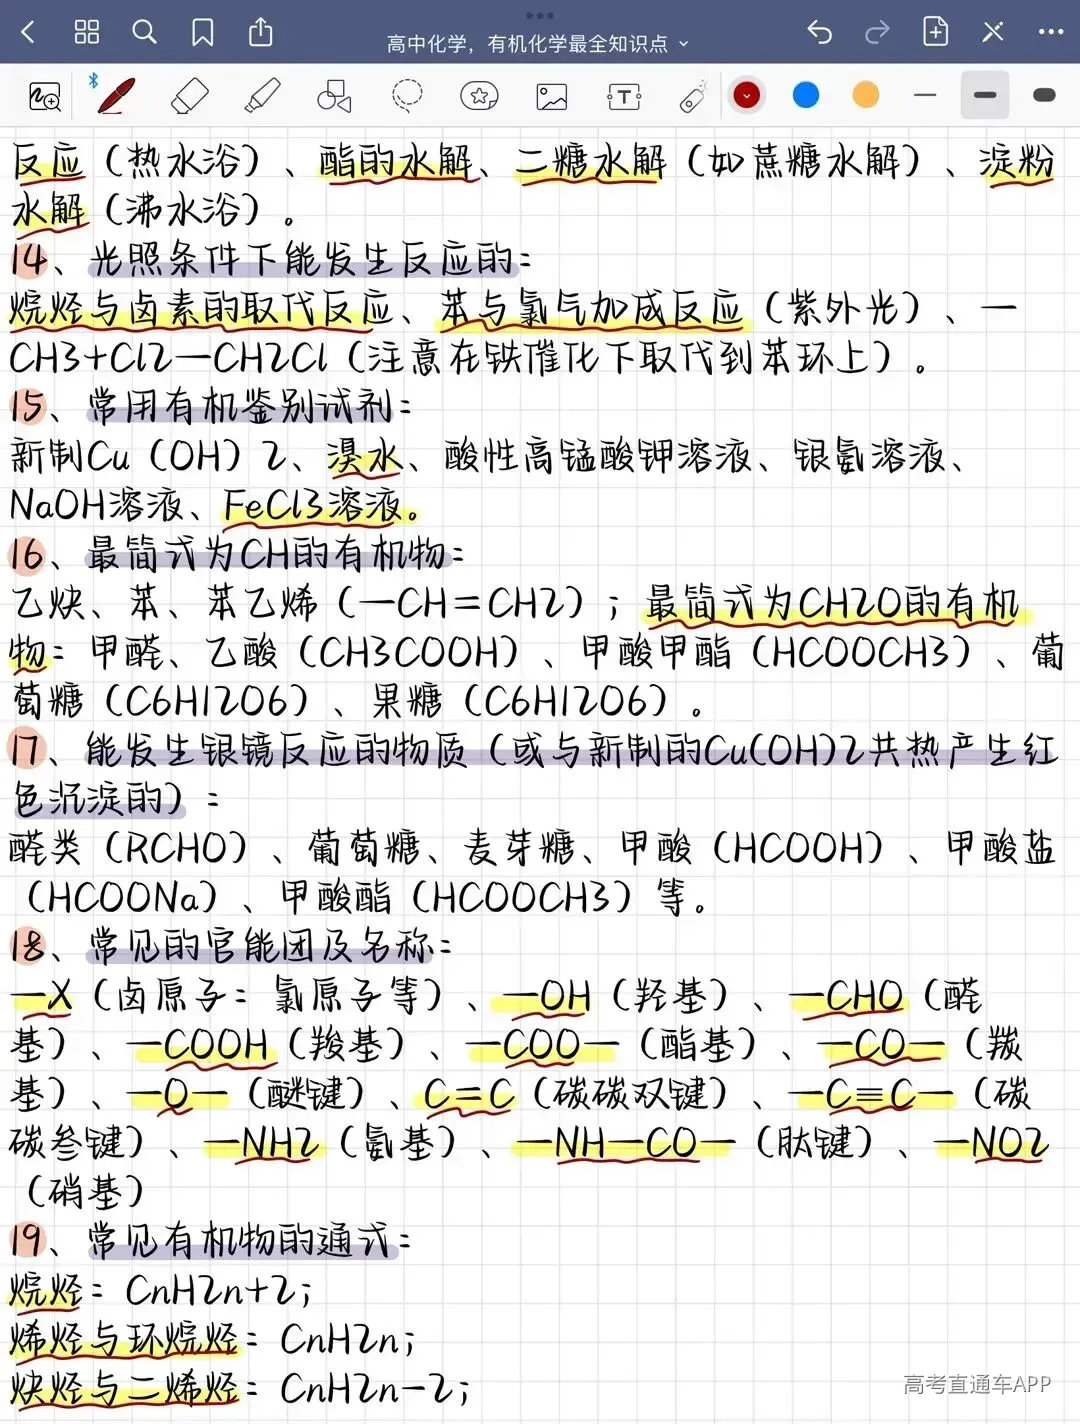 高中化学，有机化学最全知识点
反应（热水浴）、酯的水解、二糖水解（如蔗糖水解）、淀粉
水解（沸水浴）。
14、光照条件下能发生反应的：
烷烃与卤素的取代反应、苯与氯气加成反应（紫外光）、—
CH3+Cl2—CH2Cl（注意在铁催化下取代到苯环上）。
15、常用有机鉴别试剂：
新制Cu（OH）2、溴水、酸性高锰酸钾溶液、银氨溶液、
NaOH溶液、FeCl3溶液。
16、最简式为CH的有机物：
乙炔、苯、苯乙烯（—CH=CH2）；最简式为CH2O的有机
物：甲醛、乙酸（CH3COOH）、甲酸甲酯（HCOOCH3）、葡
萄糖（C6H12O6）、果糖（C6H12O6）。
17、能发生银镜反应的物质（或与新制的Cu(OH)2共热产生红
色沉淀的）：
醛类（RCHO）、葡萄糖、麦芽糖、甲酸（HCOOH）、甲酸盐
（HCOONa）、甲酸酯（HCOOCH3）等。
18、常见的官能团及名称：
—X（卤原子：氯原子等）、—OH（羟基）、—CHO（醛
基）、—COOH（羧基）、—COO—（酯基）、—CO—（羰
基）、—O—（醚键）、C=C（碳碳双键）、—C≡C—（碳
碳叁键）、—NH2（氨基）、—NH—CO—（肽键）、—NO2
（硝基）
19、常见有机物的通式：
烷烃：CnH2n+2；
烯烃与环烷烃：CnH2n；
炔烃与二烯烃：CnH2n-2；
高考直通车APP